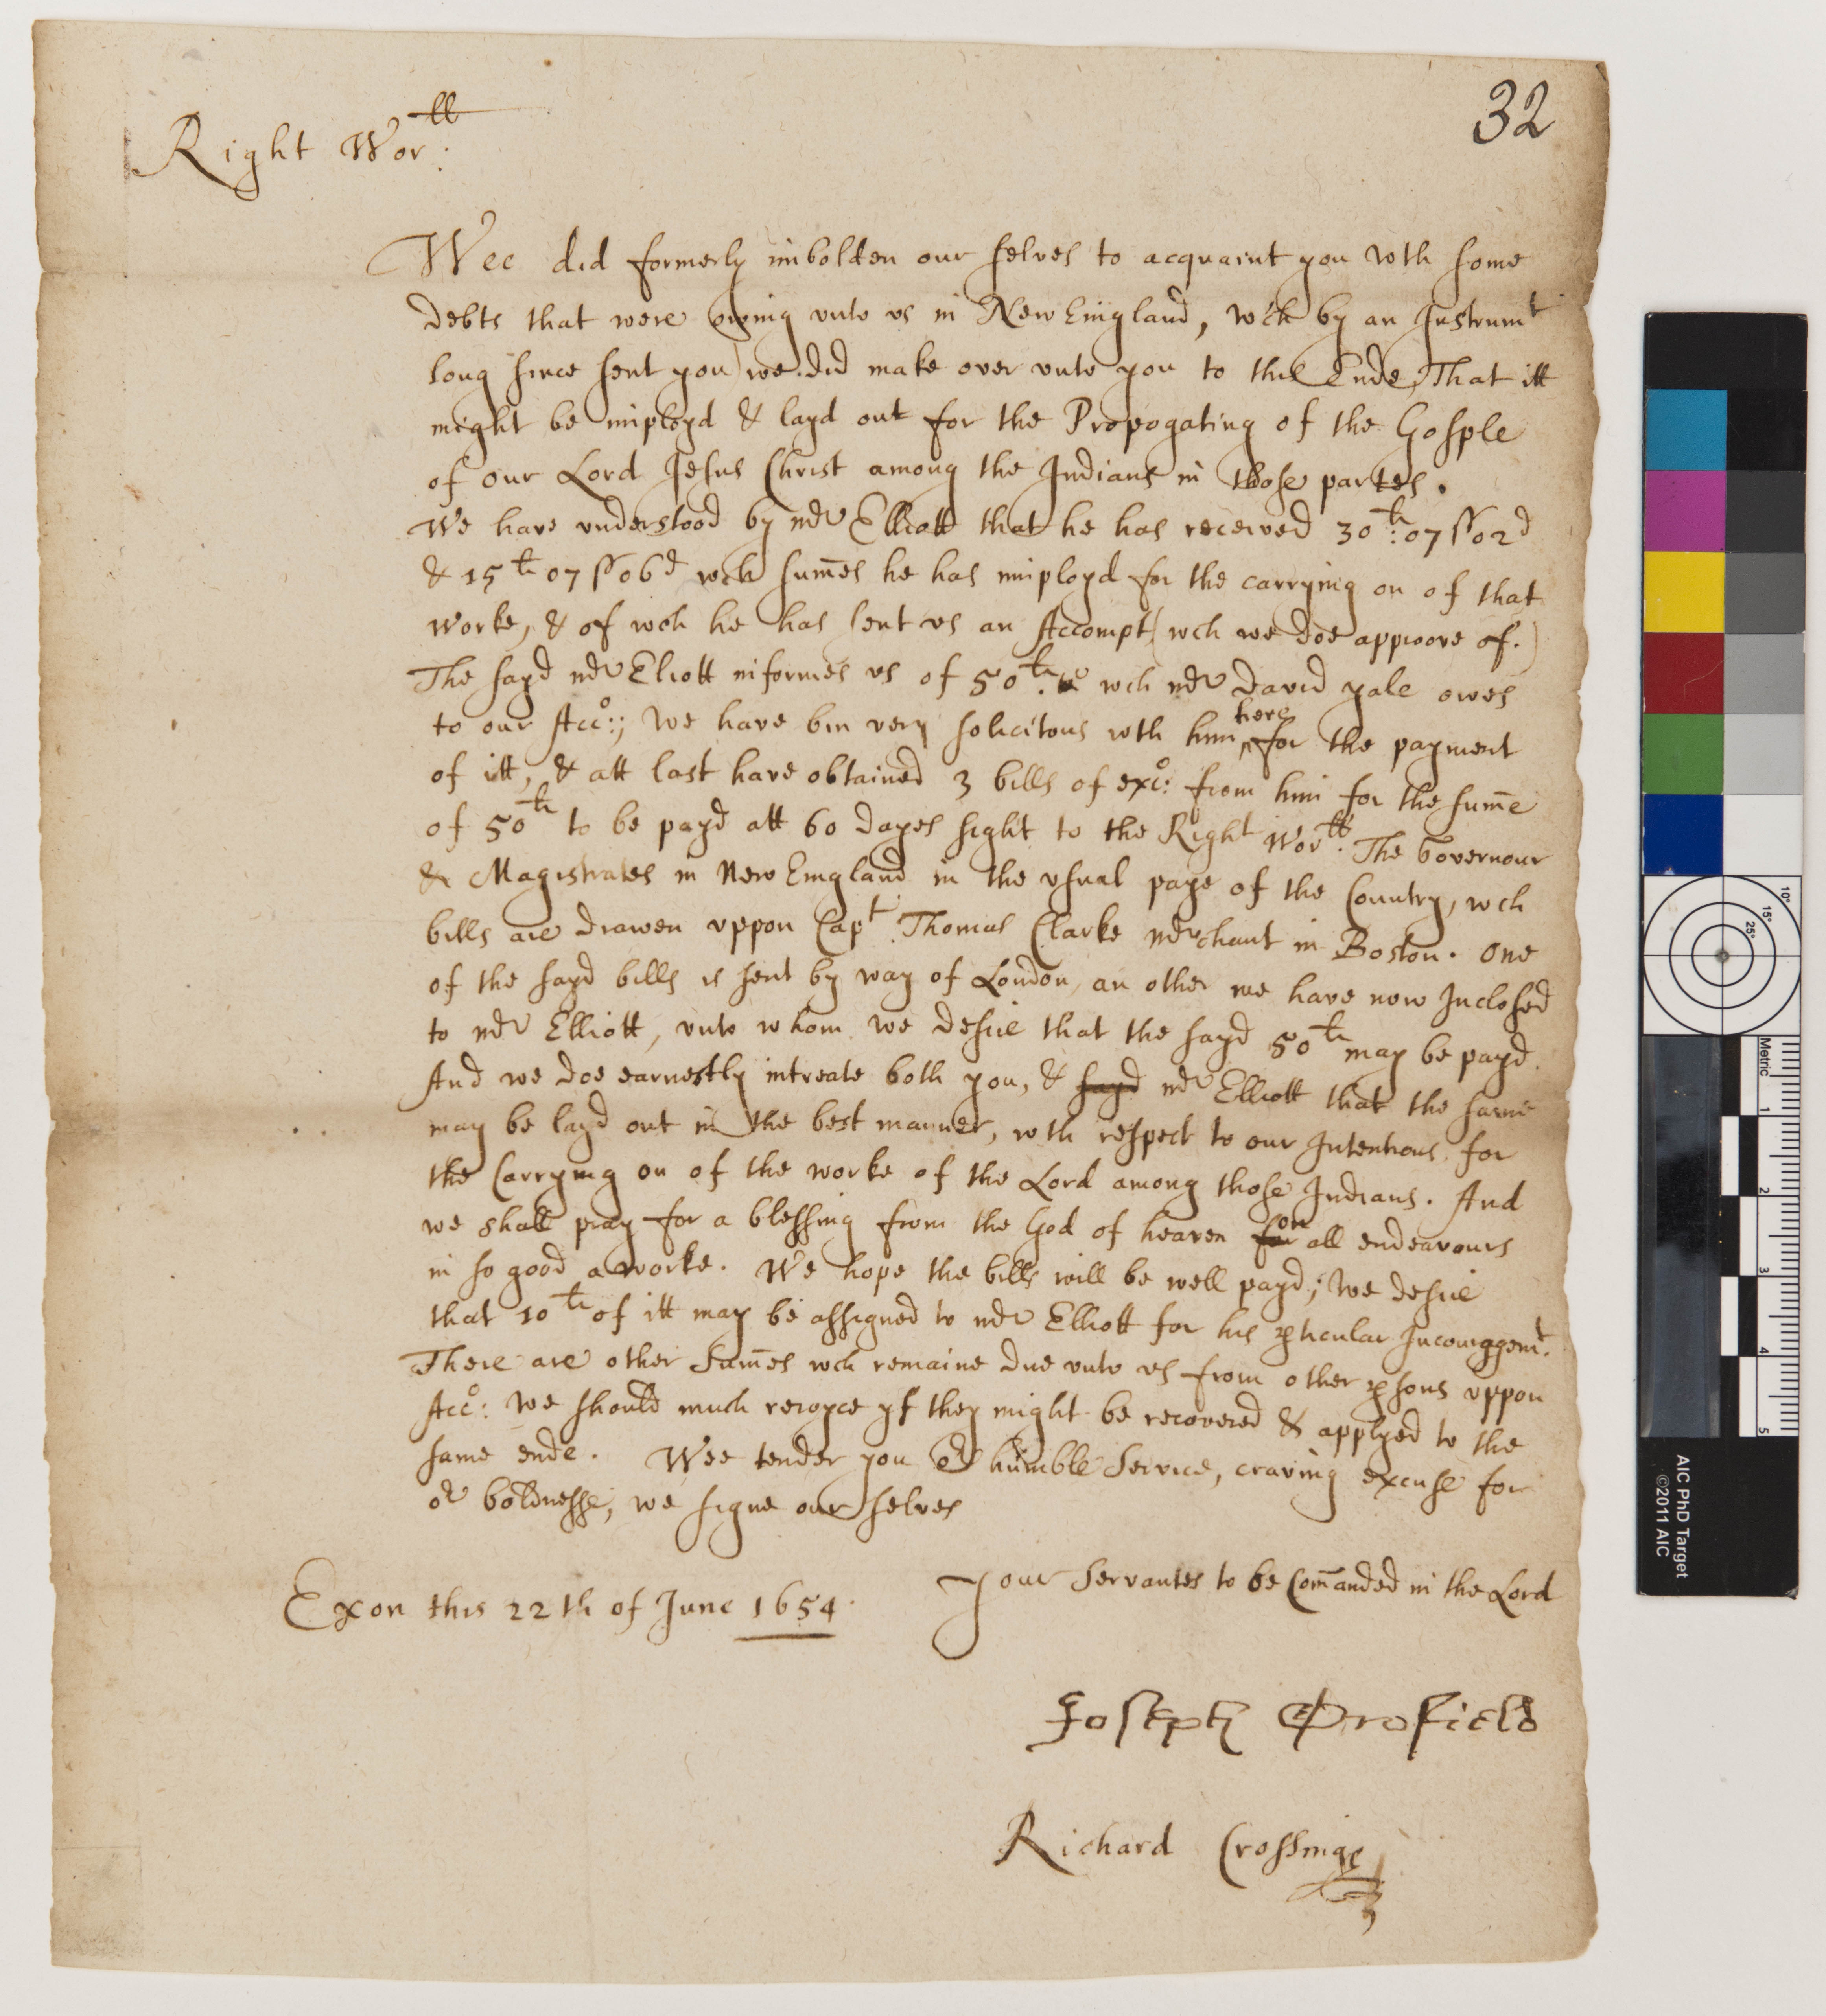 32
Right Worll:
Wee did formerly imbolden our selves to acquaint you wth some
debts that were owing vnto vs in New England, wch by an Instrumt
long since sent you) we did make over vnto you to this Ende, That itt
might be imployd & layd out for the Propogating of the Gosple
of our Lord Jesus Christ among the Indians in those partes.
We have vnderstood by mr Elliott that he has received 30li: 07ss 02d
& 15li 07ss 06d wch sum̄es he has imployd for the carrying on of that
worke, & of wch he has sent vs an Accompt (wch we doe approove of.)
The sayd mr Eliott informes vs of 50li: wch mr David yale owes
to our Acco:; We have bin very solicitous wth him here for the payment
of itt, & att last have obtained 3 bills of exco: from him for the sum̄e
of 50li to be payd att 60 dayes sight to the Right Worll: The Governour
& Magistrates in New England in the vsual paye of the Country, wch
bills are drawen vppon Capt. Thomas Clarke mrchant in Boston. One
of the sayd bills is sent by way of London, an other we have now Inclosed
to mr Elliott, vnto whom we desire that the sayd 50li may be payd.
And we doe earnestly intreate both you, & sayd mr Elliott that the same
may be layd out in the best manner, wth respect to our Intentions for
the Carrying on of the worke of the Lord among those Indians. And
we shall pray for a blessing from the God of heaven for on all endeavours
in so good a worke. We hope the bills will be well payd; We desire
that 10li of itt may be assigned to mr Elliott for his ꝑticular Incouraggemt.
There are other Sum̄es wch remaine due vnto vs from other ꝑsons vppon
Acco: We should much reioyce yf they might be recovered & applyed to the
same ende. Wee tender you or humble Service, craving excuse for
or boldnesse, we signe our selves
Your Servantes to be Com̄anded in the Lord
Exon this 22th of June 1654.
Joseph
Richard Crossinge
AIC PhD Target
©2011 AIC
Metric
1
2
3
4
5
10°
15°
25°